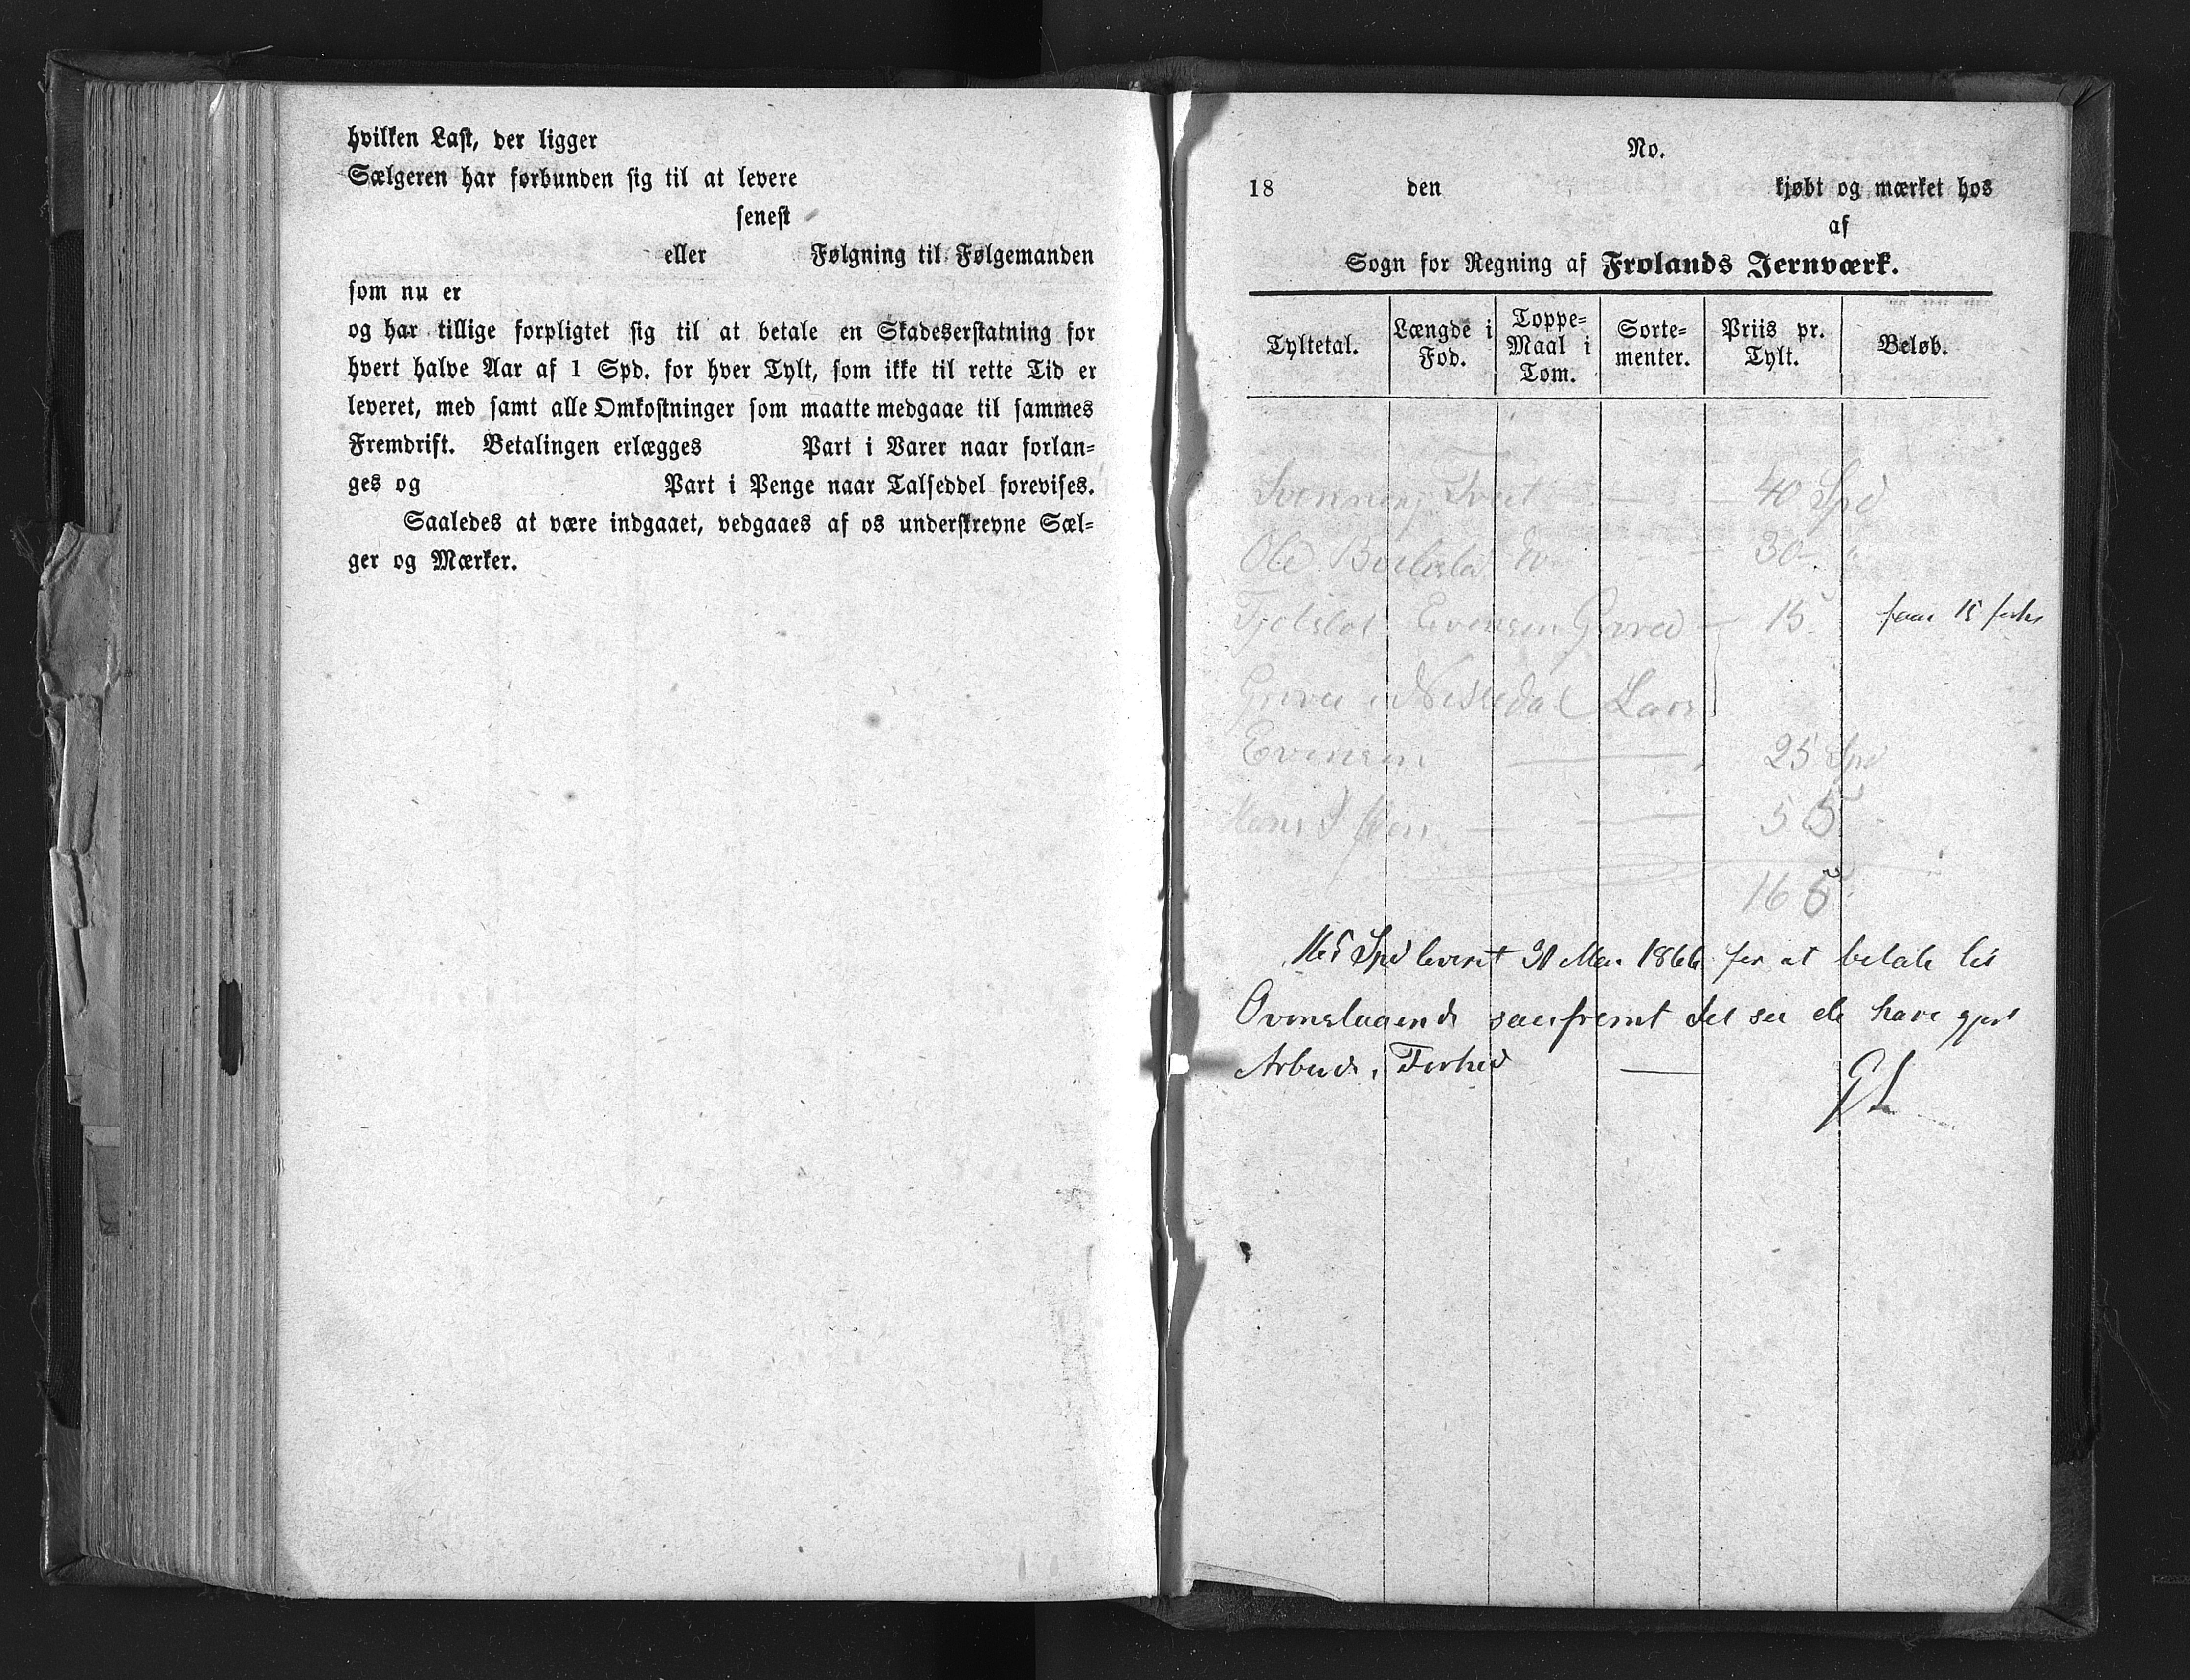 hvilken Last, der ligger
Sælgeren har forbunden sig til at levere
senest
eller Følgning til Følgemanden
som nu er
og har tillige forpligtet sig til at betale en Skadeserstatning for
hvert halve Aar af 1 Spd. for hver Tylt, som ikke til rette Tid er
leveret, med samt alle Omkostninger som maatte medgaae til sammes
Fremdrift. Betalingen erlægges Part i Varer naar forlan-
ges og Part i Penge naar Talseddel forevises.
Saaledes at være indgaaet, vedgaaes af os underskrevne Sæl-
ger og Mærker.
No.
18 den kjøbt og mærket hos
af
Sogn for Regning af Frolands Jernværk.
Tyltetal. Længde i Fod. Toppe-Maal i Tom. Sorte-menter. Priis pr. Tylt. Beløb.
Svenning Tveit 40 Spd
Ole 30 "
Evensen 15 faar 15
Nissedal Lars
Evensen 25 Spd
Hans 55
165
165 Spd leveret 1866 for at betale
saafremt det have gjort
Arbeide i